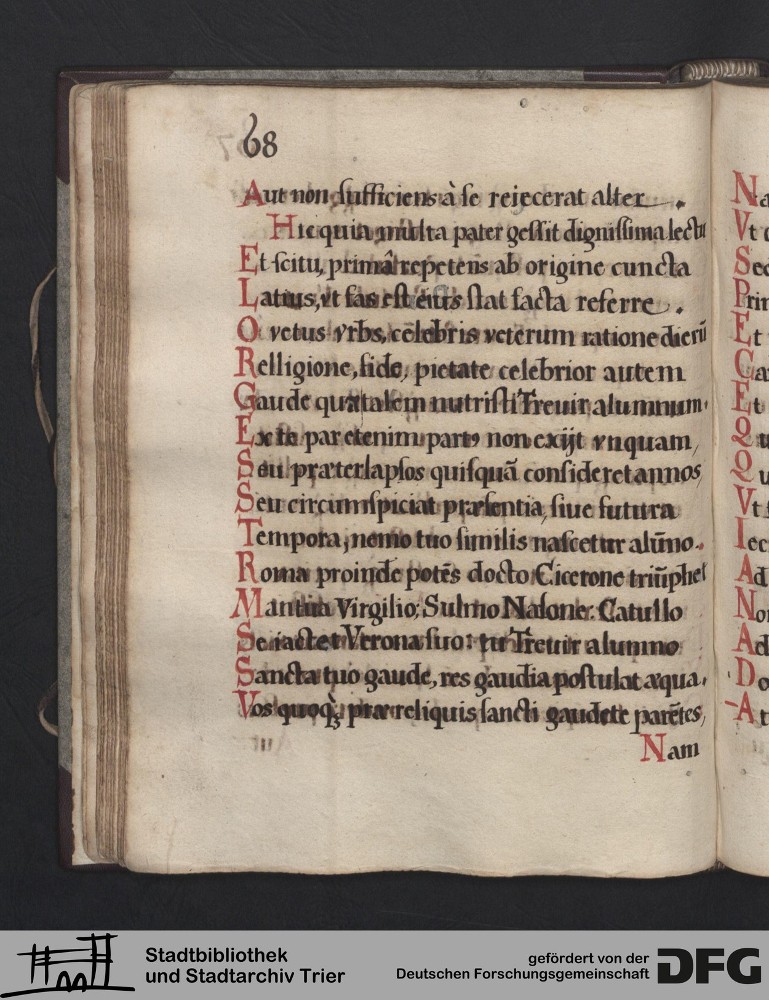 68
Aut non sufficiens à se reiecerat alter.
Hic quia multa pater gessit dignissima lectu
Et scitu, primâ repetens ab origine cuncta
Latius, vt fas est eius stat facta referre.
O vetus vrbs, celebris veterum ratione dierū
Relligione, fide, pietate celebrior autem
Gaude quæ talem nutristi Treuir alumnum.
Ex te par etenim partꝰ non exijt vnquam,
Seu præterlapsos quisquā consideret annos,
Seu circumspiciat præsentia, siue futura
Tempora, nemo tuo similis nascetur alūno.
Roma proinde potēs docto Cicerone triūphet
Mantua Virgilio: Sulmo Nasone: Catullo
Se iactet Verona suo: tu Treuir alumno
Sancta tuo gaude, res gaudia postulat æqua.
Vos quoq; præ reliquis sancti gaudete parētes,
Nam
Na
Vt
Sec
Prin
Et
Ca
Et
Qu
Qu
Vt
Iec
Ad
Non
Ad
Do
At
Stadtbibliothek
und Stadtarchiv Trier
gefördert von der
Deutschen Forschungsgemeinschaft
DFG